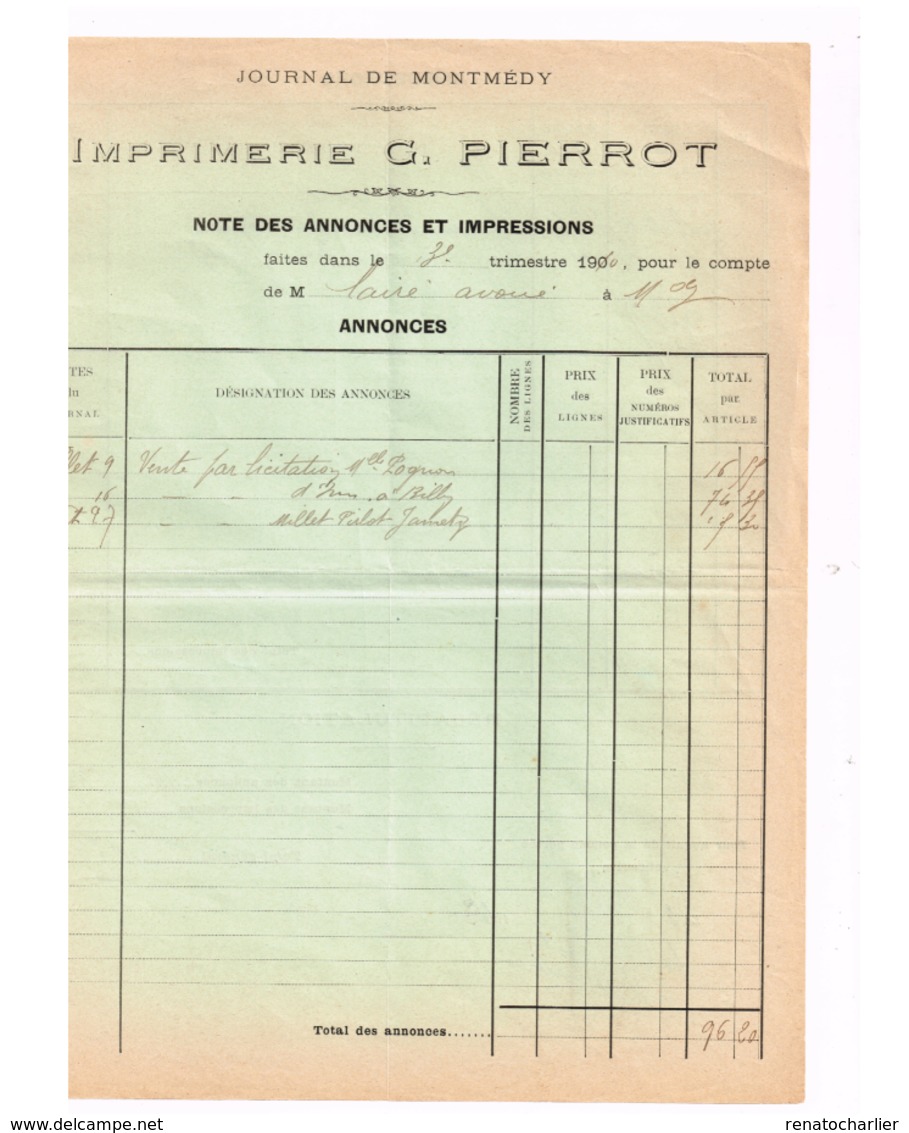 JOURNAL DE MONTMÉDY
IMPRIMERIE G. PIERROT
NOTE DES ANNONCES ET IMPRESSIONS
faites dans le 3e trimestre 1910, pour le compte
de M Lairé avoué à Mdy
ANNONCES
TES du RNAL
DÉSIGNATION DES ANNONCES
NOMBRE DES LIGNES
PRIX des LIGNES
PRIX des NUMÉROS JUSTIFICATIFS
TOTAL par ARTICLE
llet 9 Vente par licitation Mlle Pognon 16
16 — - à Billy
— - Millet Pirlot Jametz 30
Total des annonces....... 96 20
delcampe.net
renatocharlier